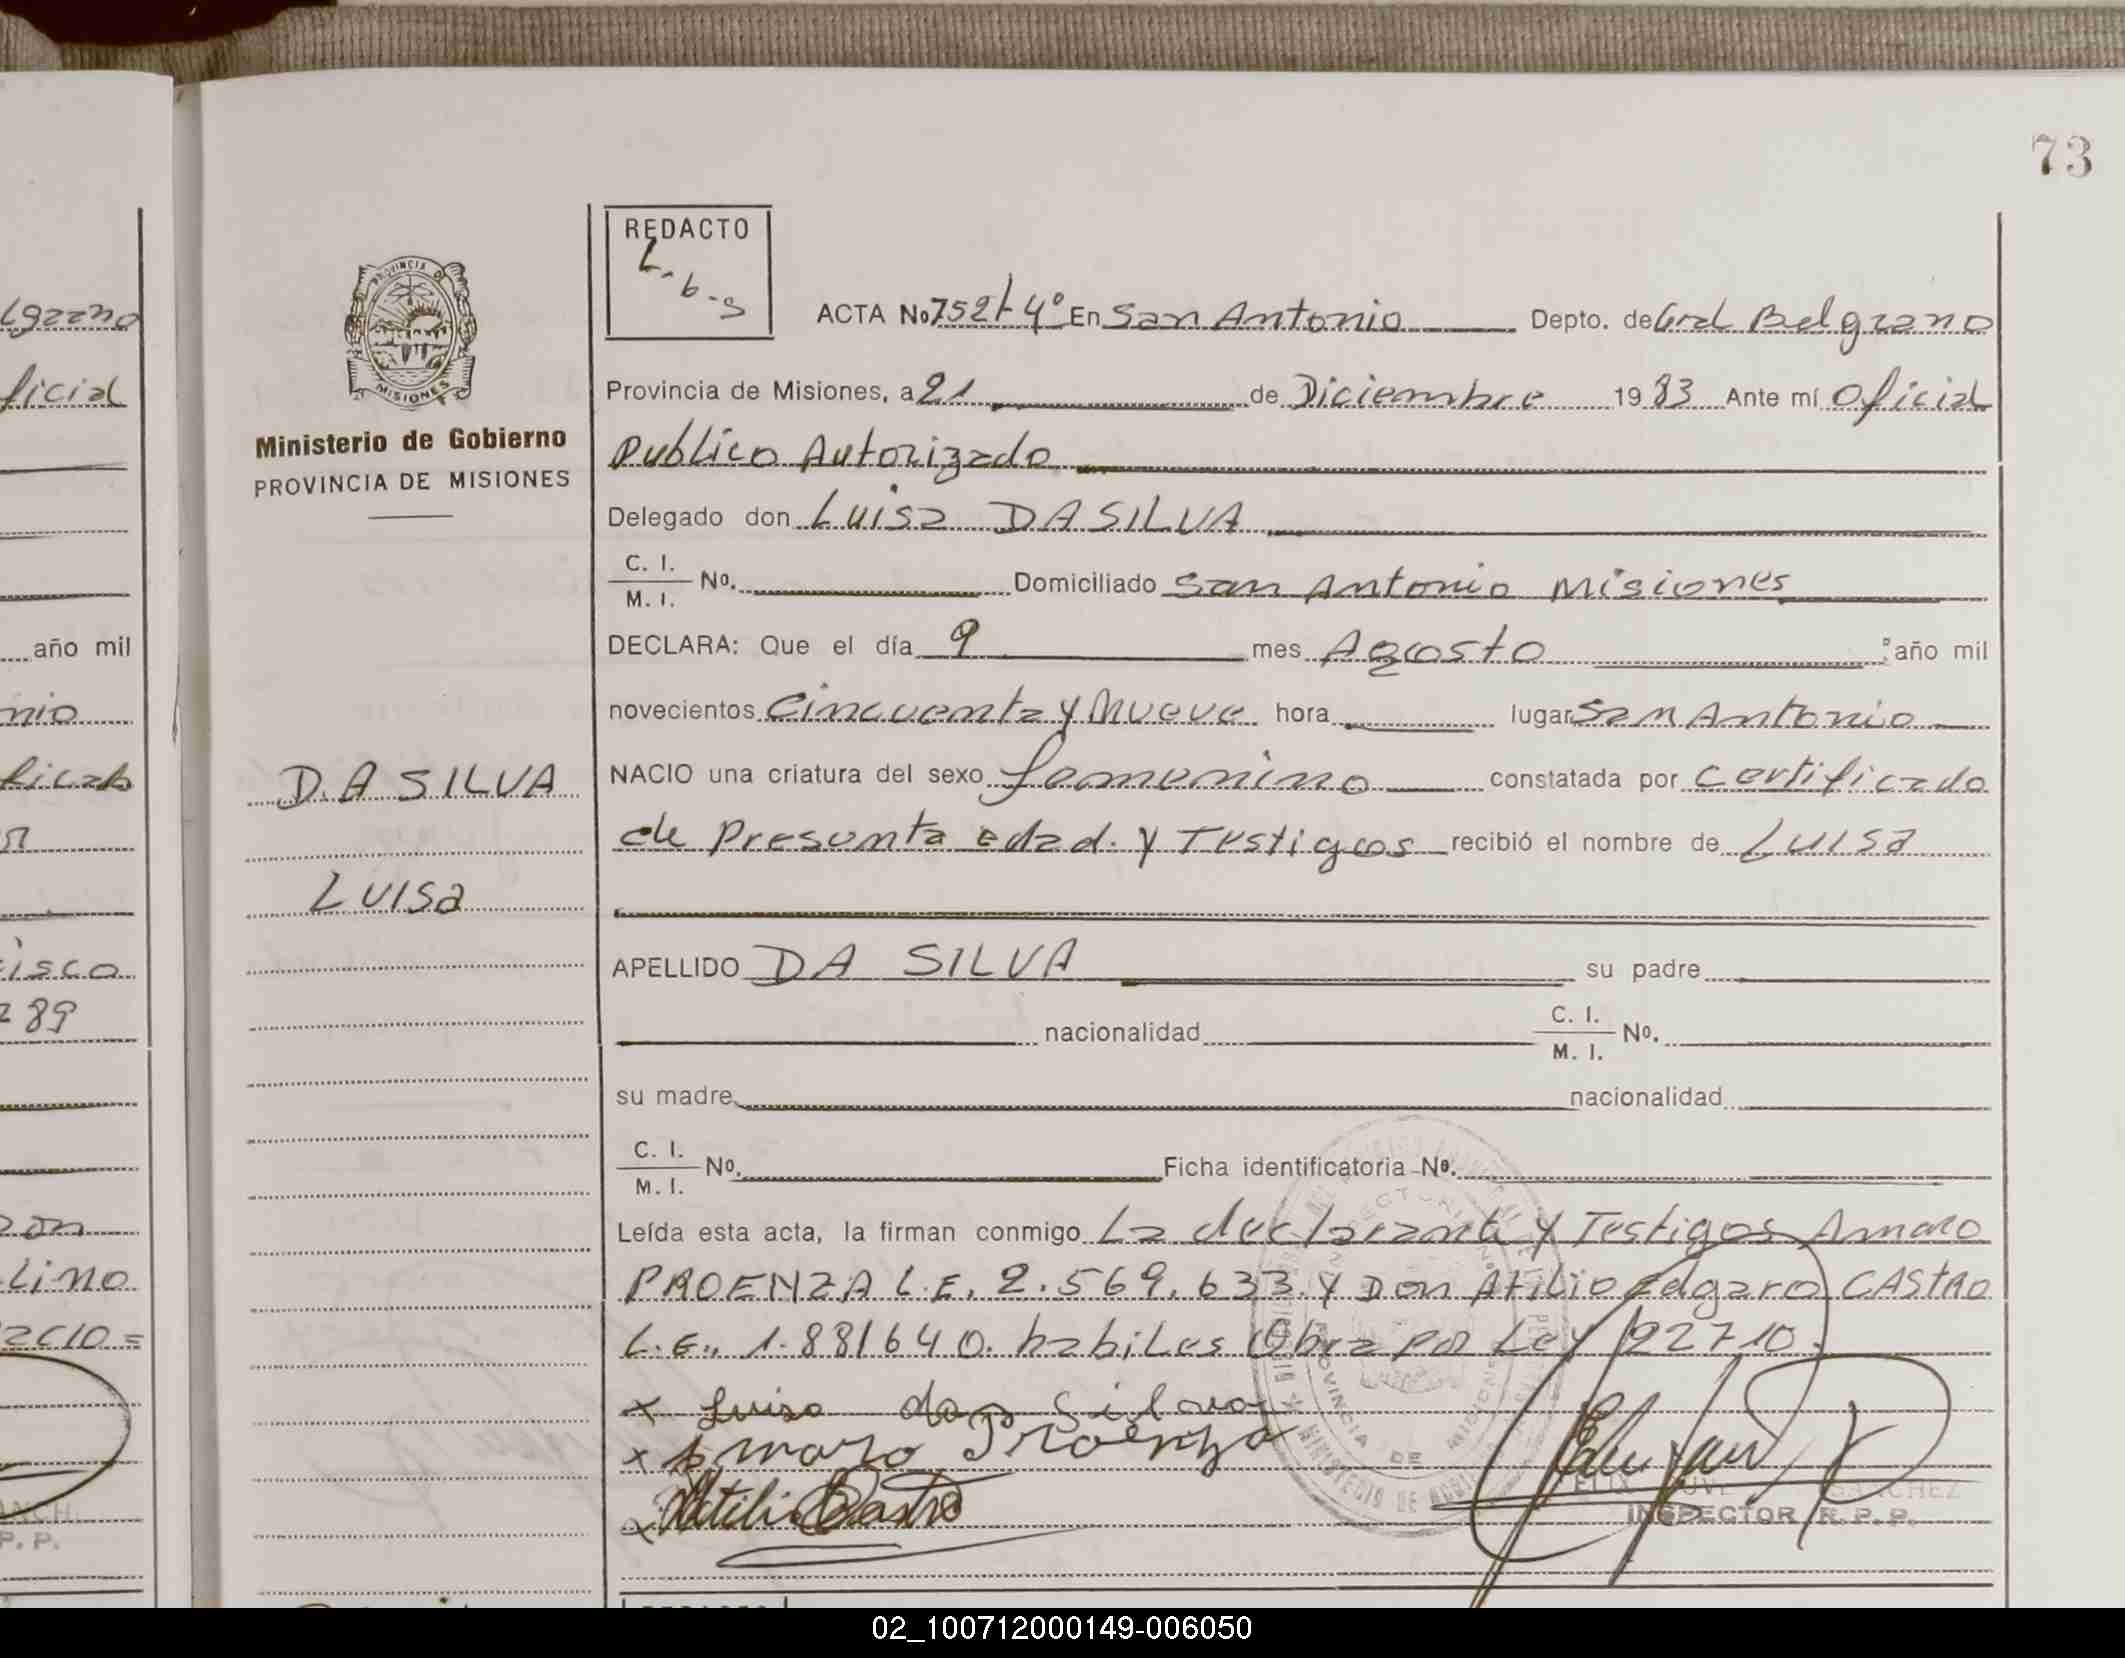 73
REDACTO
L-b-s
PROVINCIA DE
MISIONES
Ministerio de Gobierno
PROVINCIA DE MISIONES
ACTA No 752 t 4º En San Antonio Depto. de Gral Belgrano
Provincia de Misiones, a 21 de Diciembre 1983 Ante mí Oficial
Publico Autorizado
Delegado don Luisa DA SILVA
C. I.
M. I. No. Domiciliado San Antonio Misiones
DECLARA: Que el día 9 mes Agosto año mil
novecientos Cincuenta y Nueve hora lugar San Antonio
DA SILVA
NACIO una criatura del sexo femenino constatada por Certificado
de Presunta edad. y Testigos recibió el nombre de Luisa
LUISa
APELLIDO DA SILVA su padre
nacionalidad C. I.
M. I. No.
su madre nacionalidad
C. I.
M. I. No. Ficha identificatoria No.
Leída esta acta, la firman conmigo La declarante y Testigos Amaro
PROENZA L.E. 2.569.633. y Don Atilio Edgaro CASTRO
L.E.. 1.881640. habiles Obra por Ley 22710.
x Luisa da Silva
x Amaro Proenza
x Atilio Castro
PROVINCIA DE MISIONES
SANCHEZ
INSPECTOR R.P.P.
lgrano
ficial
año mil
nio
isco
89
zon
Lino
P.P.
02_100712000149-006050